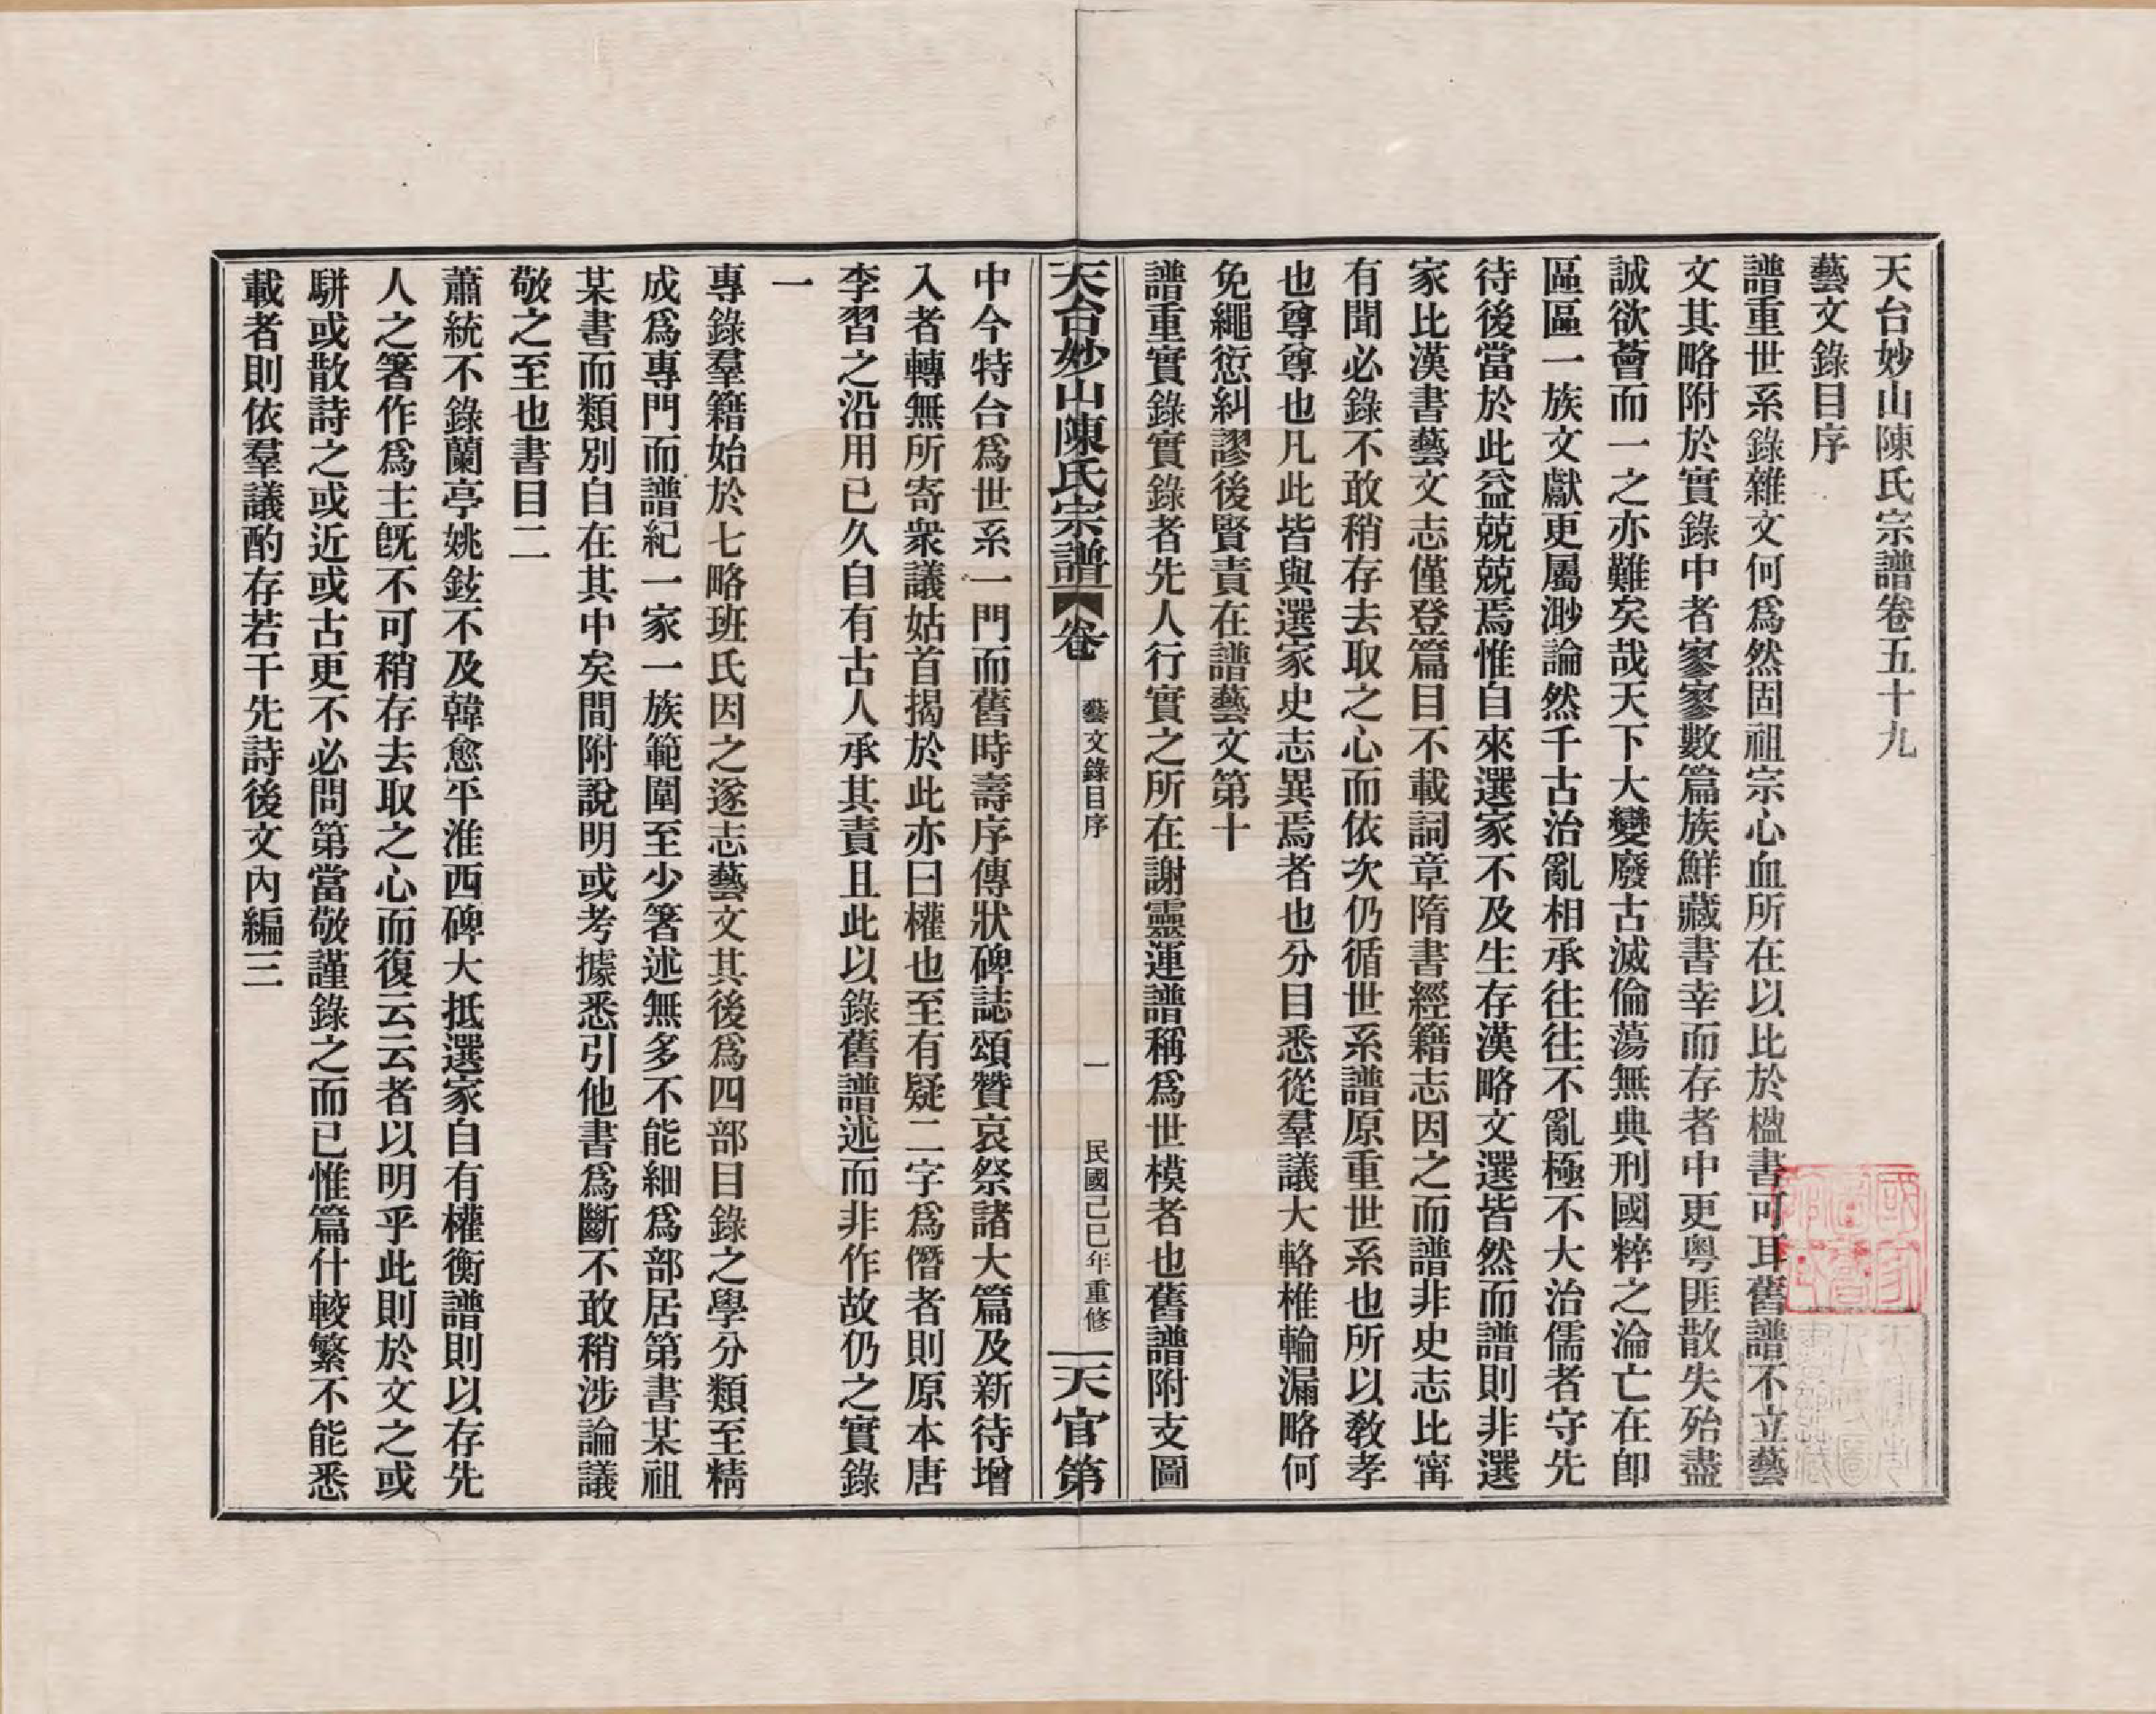 天台妙山陳氏宗譜卷五十九
藝文錄目序
譜重世系錄雜文何爲然固祖宗心血所在以比於楹書可耳舊譜不立藝
文其略附於實錄中者寥寥數篇族鮮藏書幸而存者中更粵匪散失殆盡
誠欲薈而一之亦難矣哉天下大變廢古滅倫蕩無典刑國粹之淪亡在卽
區區一族文獻更屬渺論然千古治亂相承往往不亂極不大治儒者守先
待後當於此益兢兢焉惟自來選家不及生存漢略文選皆然而譜則非選
家比漢書藝文志僅登篇目不載詞章隋書經籍志因之而譜非史志比甯
有聞必錄不敢稍存去取之心而依次仍循世系譜原重世系也所以敎孝
也尊尊也凡此皆與選家史志異焉者也分目悉從羣議大輅椎輪漏略何
免繩愆糾謬後賢責在譜藝文第十
譜重實錄實錄者先人行實之所在謝靈運譜稱爲世模者也舊譜附支圖
天台妙山陳氏宗譜 卷 藝文錄目序 一 民國己巳年重修 天官第
中今特台爲世系一門而舊時壽序傳狀碑誌頌贊哀祭諸大篇及新待增
入者轉無所寄衆議姑首揭於此亦曰權也至有疑二字爲僭者則原本唐
李習之沿用已久自有古人承其責且此以錄舊譜述而非作故仍之實錄
一
專錄羣籍始於七略班氏因之遂志藝文其後爲四部目錄之學分類至精
成爲專門而譜紀一家一族範圍至少箸述無多不能細爲部居第書某祖
某書而類別自在其中矣間附說明或考據悉引他書爲斷不敢稍涉論議
敬之至也書目二
蕭統不錄蘭亭姚鉉不及韓愈平淮西碑大抵選家自有權衡譜則以存先
人之箸作爲主旣不可稍存去取之心而復云云者以明乎此則於文之或
駢或散詩之或近或古更不必問第當敬謹錄之而已惟篇什較繁不能悉
載者則依羣議酌存若干先詩後文內編三